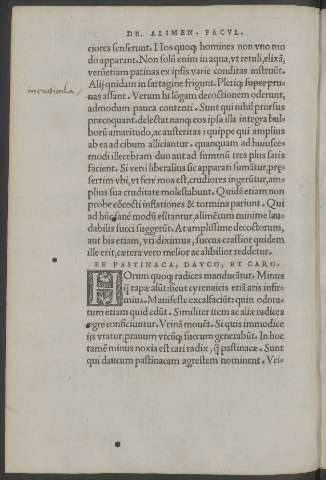 DE ALIMEN. FACVL.
ciores senserunt. Hos quoq; homines non vno mo
do apparant. Non solũ enim in aqua, vt reliqui, elixã,
verũetiam patinas ex ipsis varie conditas instruũt.
Alij quidam in sartagine frigunt. Pleriq; super pru-
nas assant. Verum hi lõgam decoctionem oderunt,
admodum pauca contenti. Sunt qui nihil prorsus
præcoquant, delectat nanq; eos ipsa illa integra bul-
borũ amaritudo, ac austeritas: quippe qui amplius
ab ea ad cibum alliciantur. quanquam ad huiusce-
modi illecebram duo aut ad summũ tres plus satis
facient. Si vero liberalius sic apparati sumãtur, præ-
sertim vbi, vt fere mos est, crudiores ingerũtur, am-
plius sua cruditate molestabunt. Quidã etiam non
probe cõcocti inflationes & tormina pariunt. Qui
ad hũc sane modũ estitantur, alimẽtum minime lau-
dabilis succi suggerũt. At amplissime decoctorum,
aut bis etiam, vti diximus, succus crassior quidem
ille erit, cætera vero melior ac alibilior reddetur.
DE PASTINACA, DAVCO, ET CARO.
HOrum quoq; radices manducãtur. Minus
q̃ rapæ alũt: sicut cyrenaicis etiã aris infir-
mius. Manifeste excalfaciũt: quin odora-
tum etiam quid edũt. Similiter item ac aliæ radices
ægre conficiuntur. Vrinã mouẽt. Si quis immodice
ijs vtatur, prauum vtcũq; succum generabũt. In hoc
tamẽ minus noxia est cari radix, q̃ pastinacæ. Sunt
qui daucum pastinacam agrestem nominent. Vri-